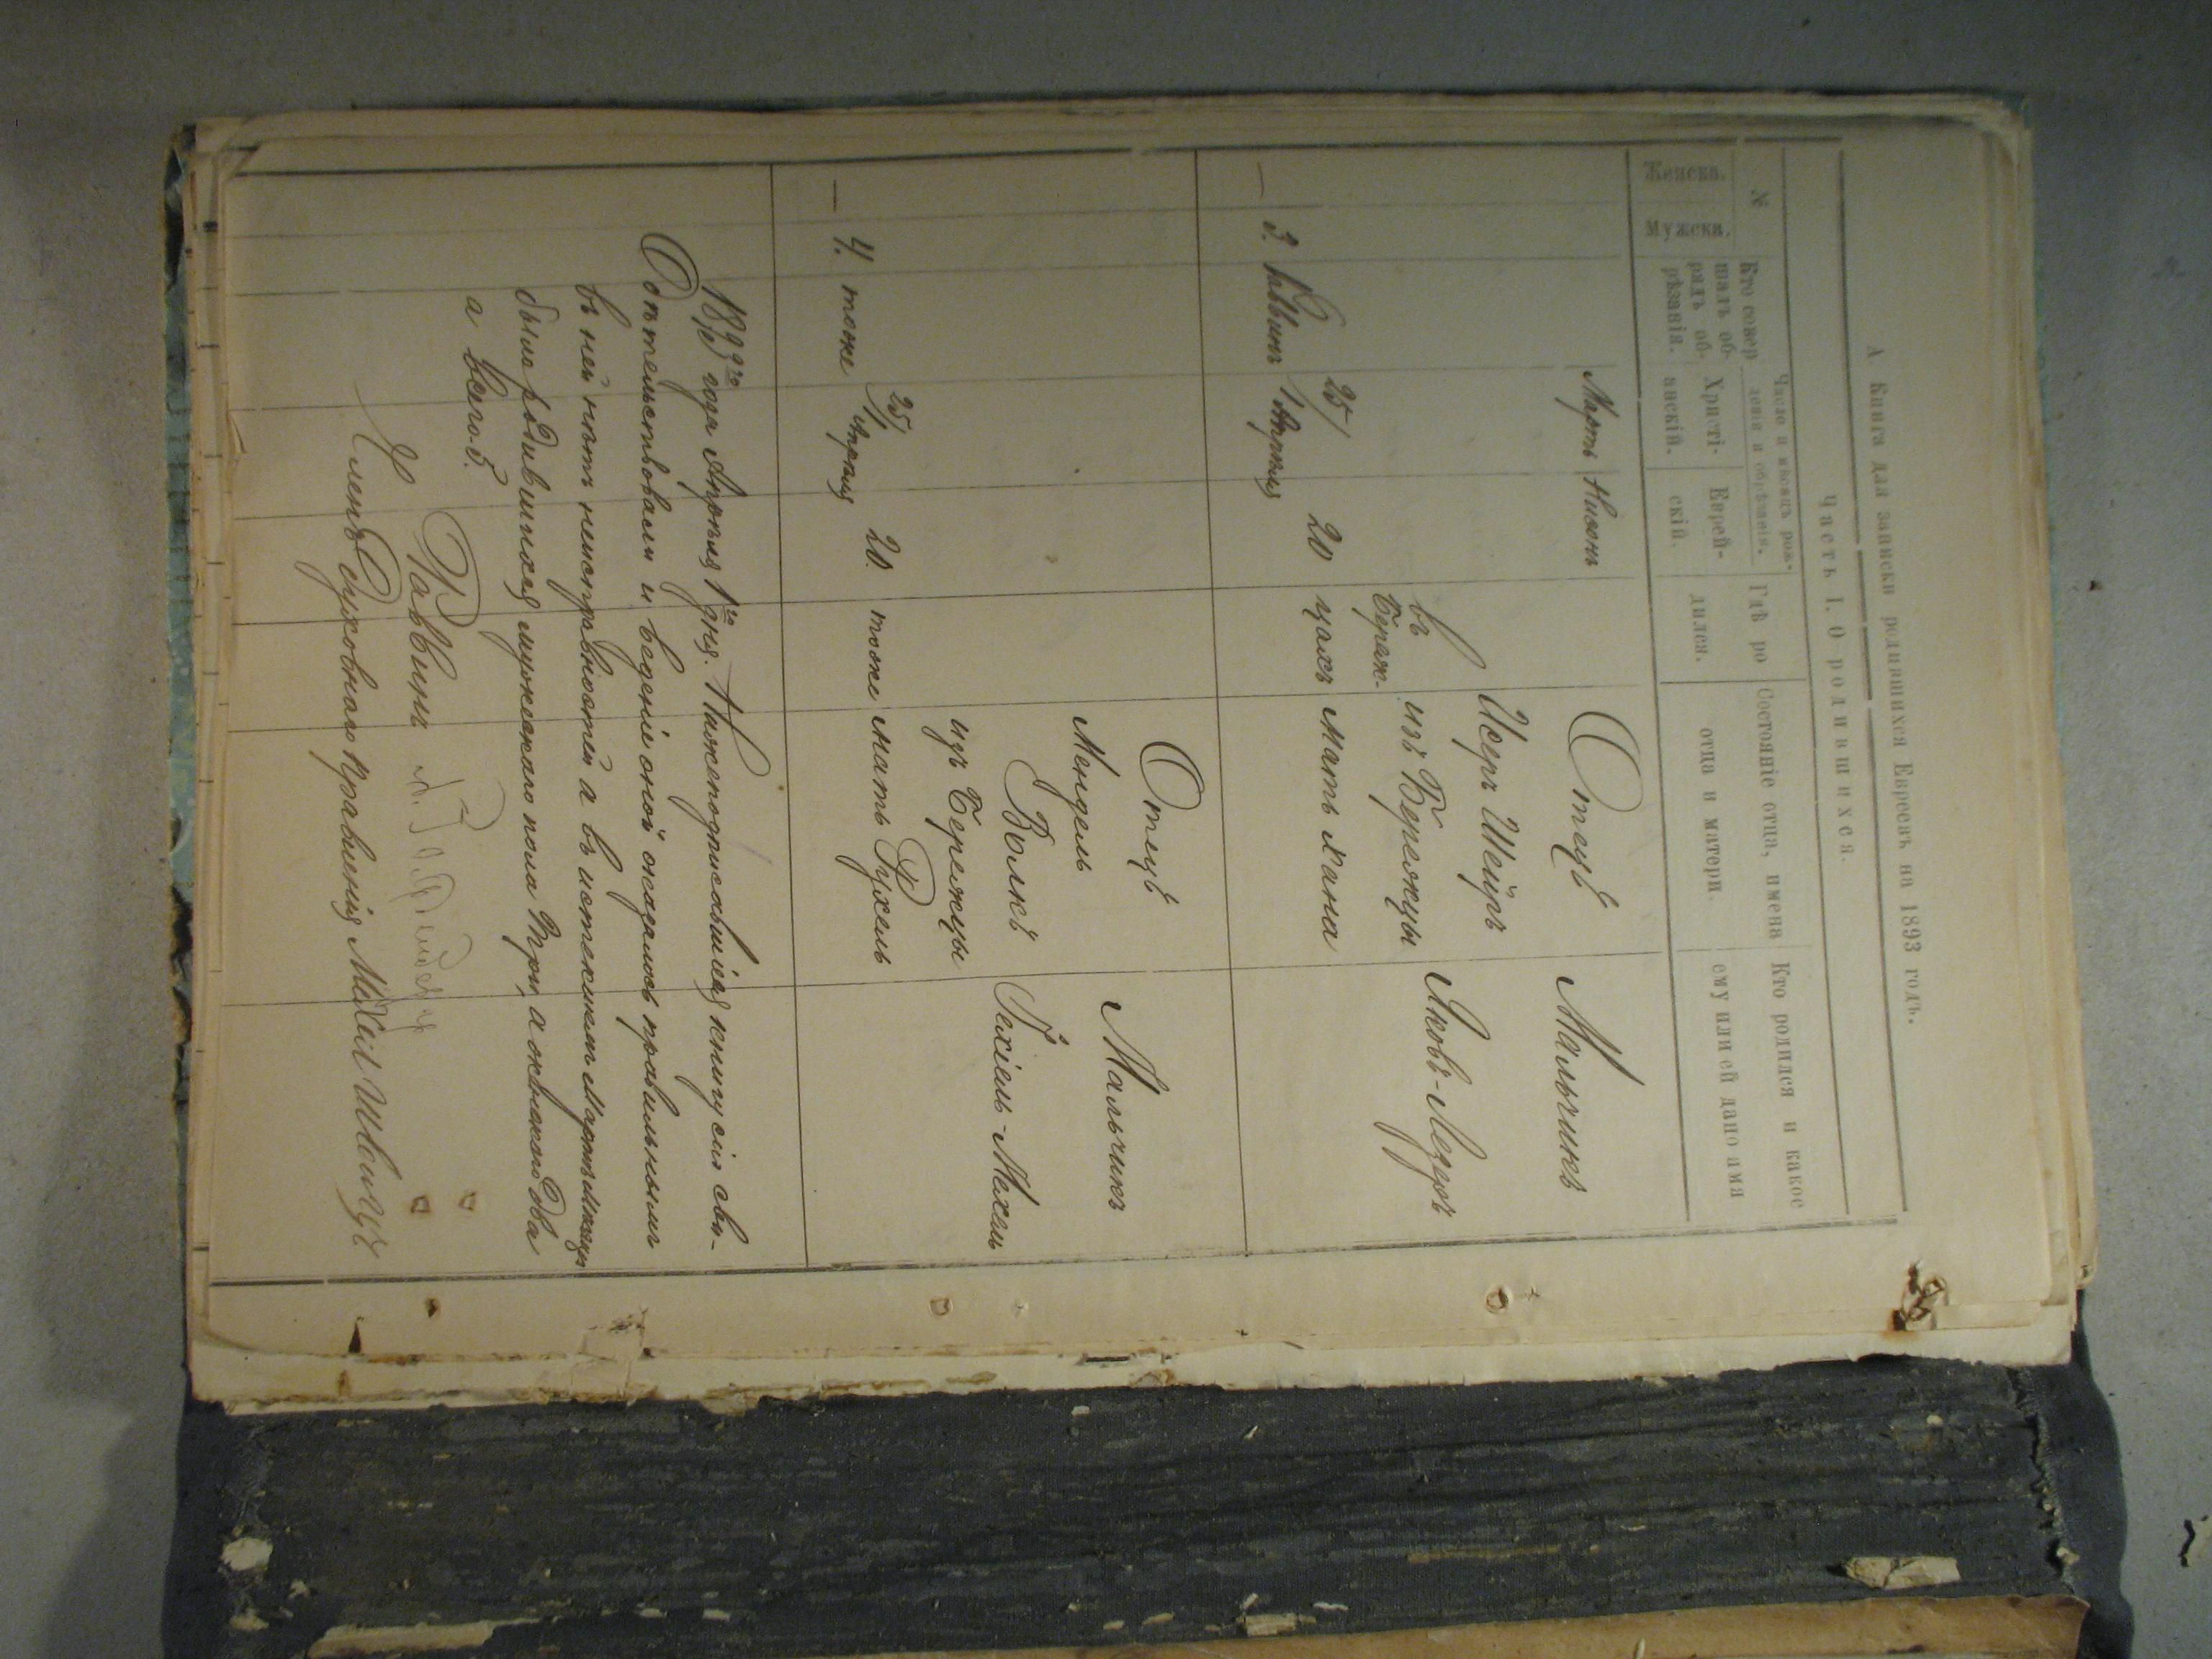 А Книга для записки родившихся Евреевъ на 1893 годъ.
Часть I. О родившихся.
№
Женска.
Мужска.
Кто совер
шалъ об-
рядъ об-
рѣзанія.
Число и мѣсяцъ рож-
денія и обрѣзанія.
Христі-
анскій.
Еврей-
скій.
Гдѣ ро
дился.
Состояніе отца, имена
отца и матери.
Кто родился и какое
ему или ей дано имя
Мартъ Нисонъ
— 3. Раввинъ 25/1 Апрѣля 20
въ
Береж-
цахъ
Отецъ
Исеръ Шейеръ
изъ Бережцы
мать Хана
Мальчикъ
Яковъ-Лезоръ
— 4. тоже 25/1 Апрѣля 20. тоже
Отецъ
Мендель
Волкъ
изъ Бережцы
мать Рухель
Мальчикъ
Іехіель-Махель
1893го года Апрѣля 1го дня. Нижеподписавшіеся книгу сію сви-
дѣтельствовали и веденіе оной оказалось правильнымъ
въ ней нѣтъ неисправностей а въ истекшемъ Мартѣ Мѣсяцѣ
было родившихся мужескаго пола три, а женскаго два
а всего 5.
Раввинъ
Членъ Духовнаго Правленія